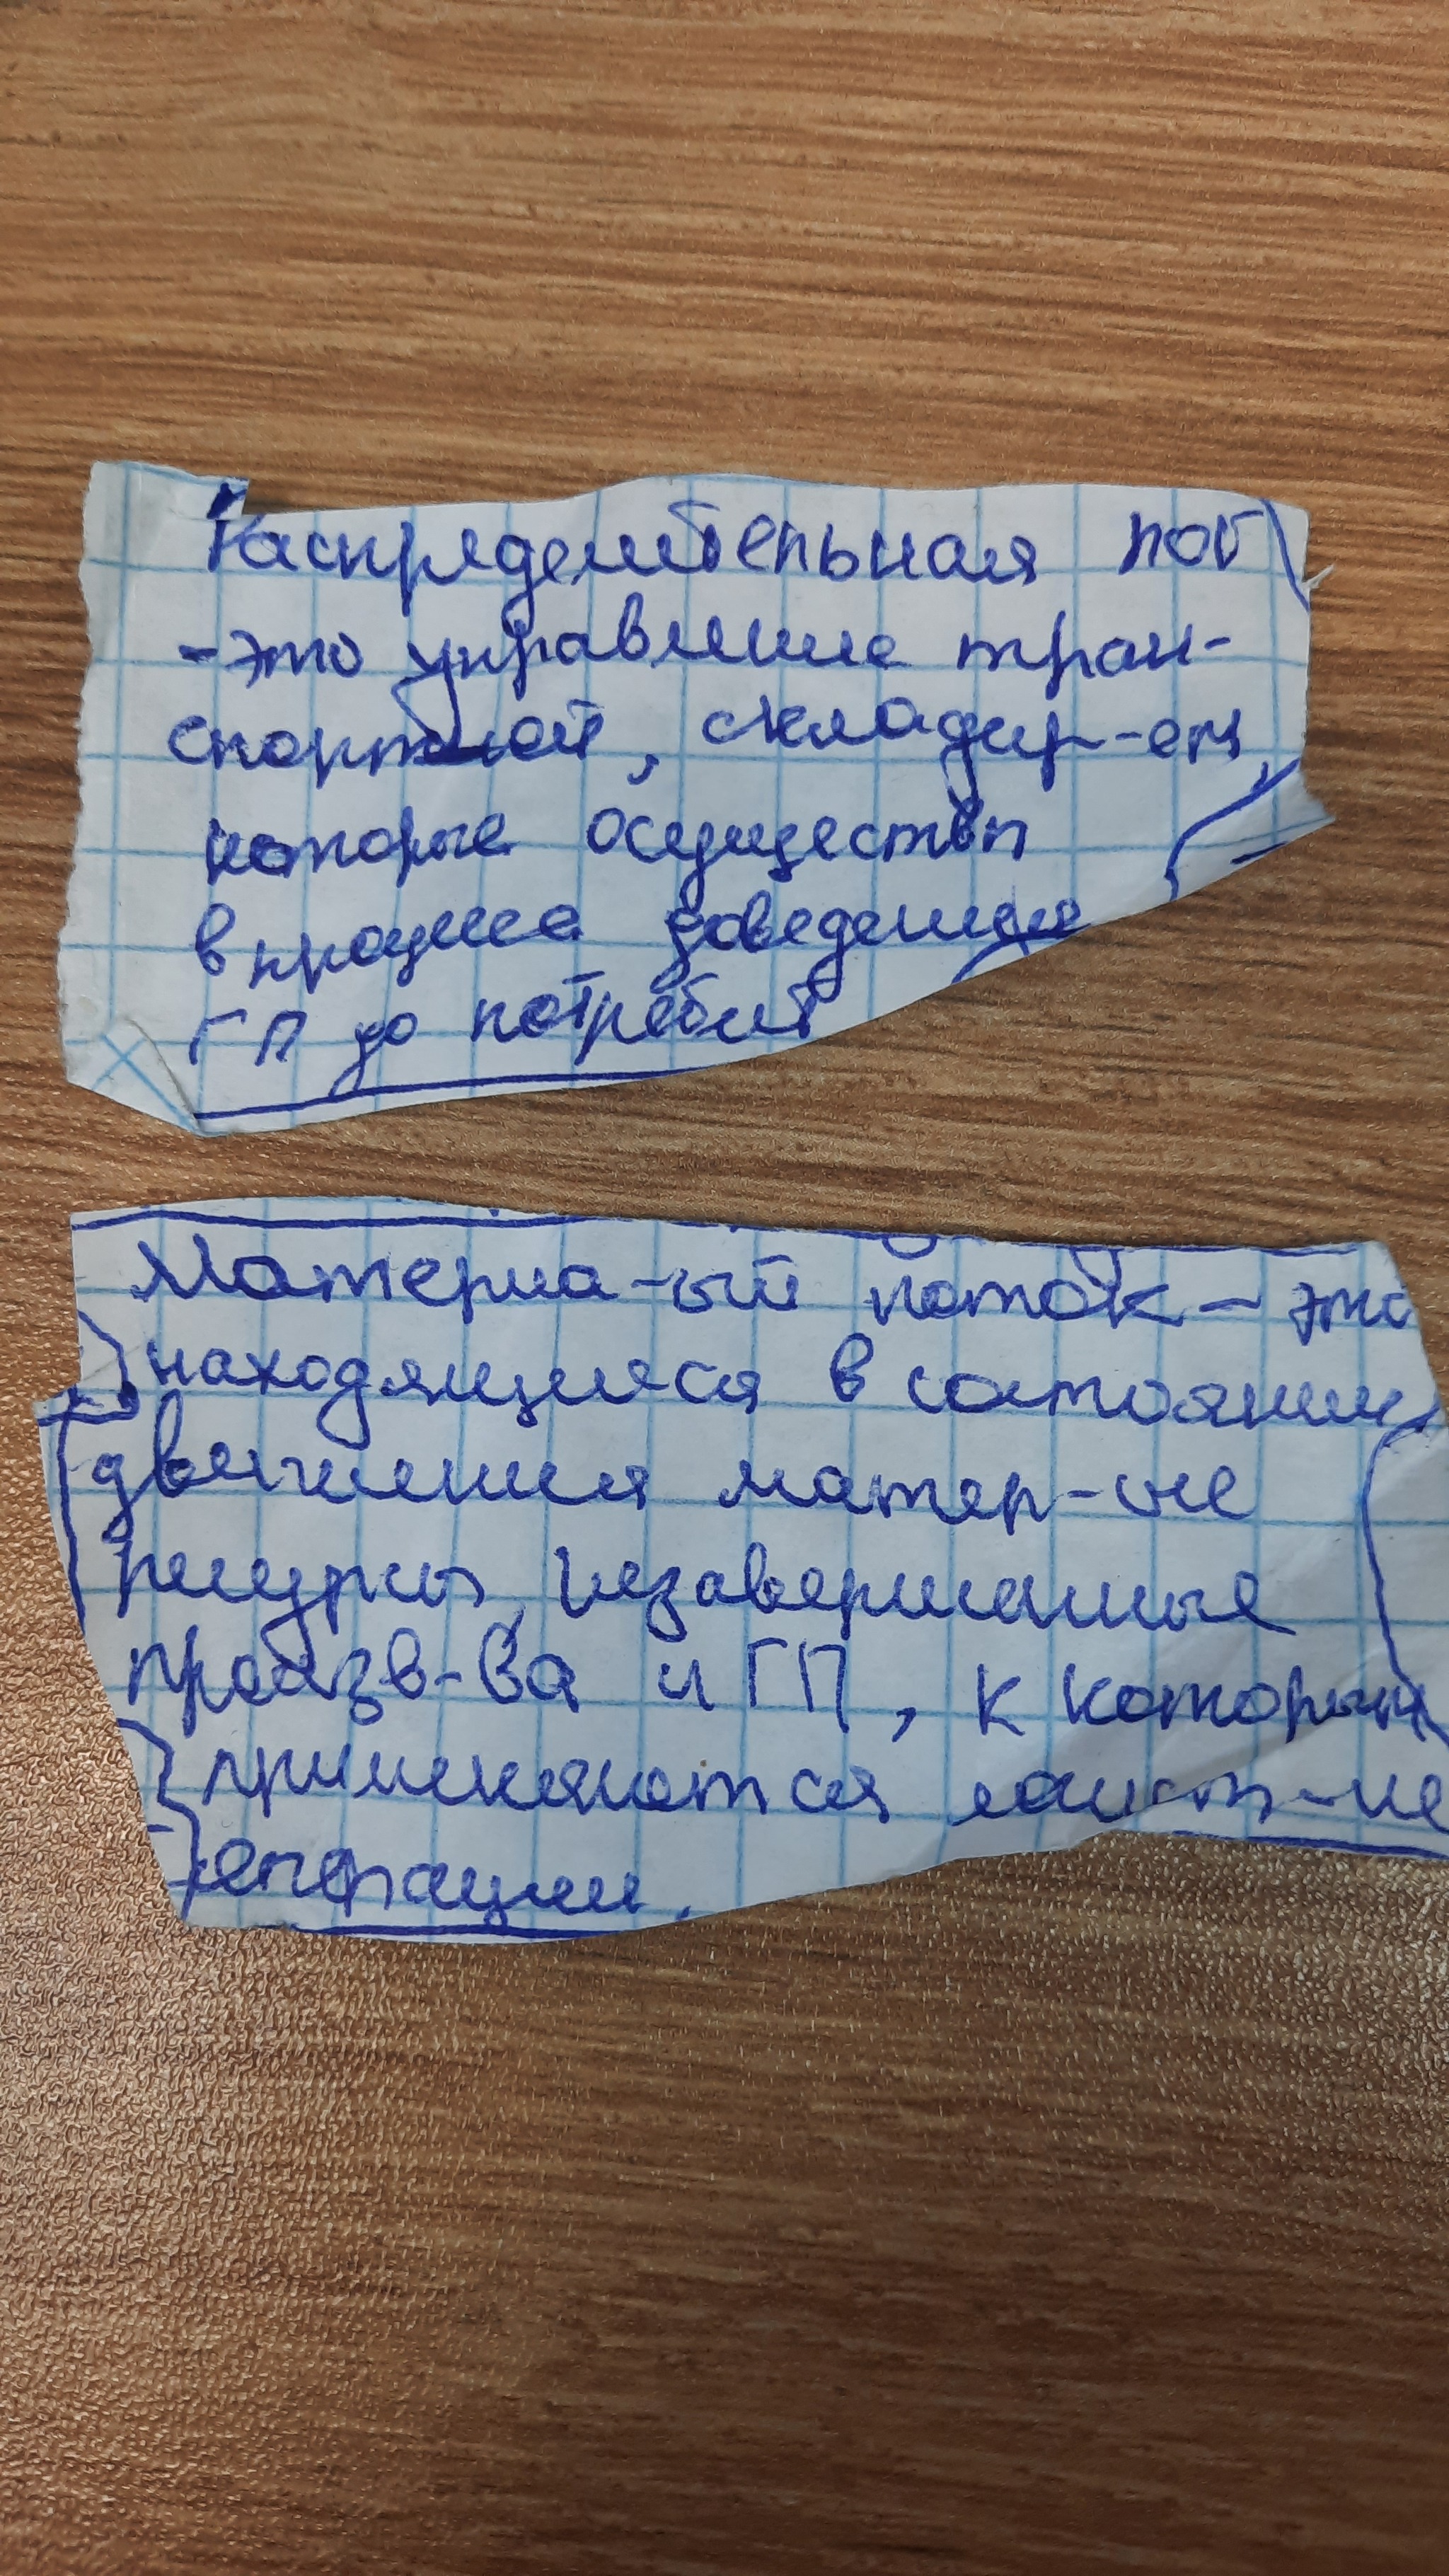 Распределительная лог
- это управление тран-
спортной, складир-ем,
которые осуществл
в процессе доведения
ГП до потребит
Материа-ый поток - это
находящиеся в состоянии
движения матер-ые
ресурсы, незавершенные
произв-ва и ГП, к которым
применяются
операции.